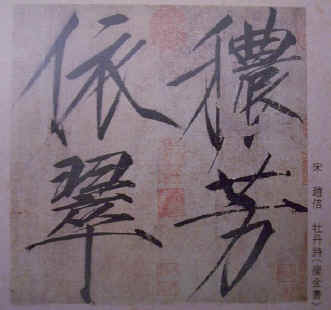 穠芳
依翠
宋 趙佶 牡丹詩(瘦金書)